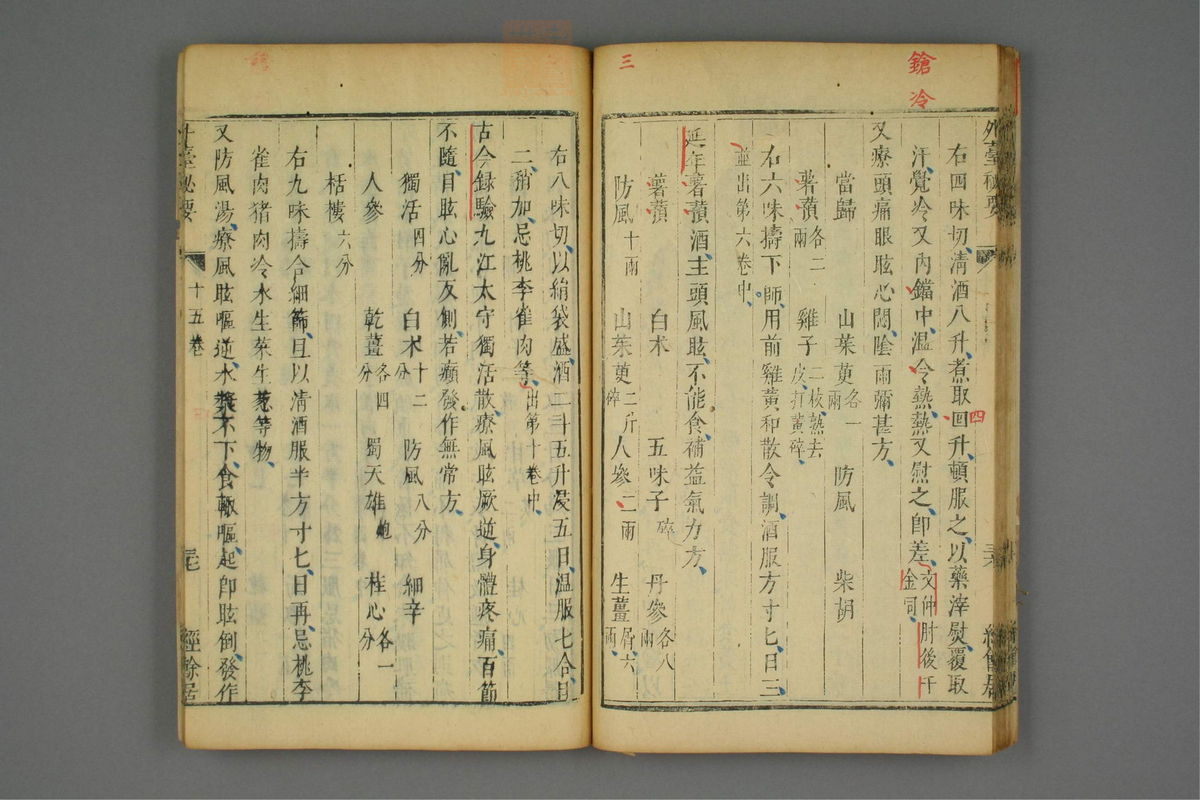 鎗冷
三
四
外臺秘要
右四味切清酒八升煮取四升頓服之以藥滓熨覆取
汗覺冷又內鐺中溫令熱熱又熨之即差文仲肘後千金同
又療頭痛眼眩心悶陰雨彌甚方
當歸 山茱萸各一兩 防風 柴胡
薯蕷各二兩 雞子二枚熟去皮打黃碎
右六味擣下篩用前雞黃和散令調酒服方寸匕日三
並出第六卷中
延年薯蕷酒主頭風眩不能食補益氣力方
薯蕷 白朮 五味子碎 丹參各八兩
防風十兩 山茱萸二斤碎 人參二兩 生薑屑六兩
右八味切以絹袋盛酒二斗五升浸五日溫服七合日
二稍加忌桃李雀肉等出第十卷中
古今録驗九江太守獨活散療風眩厥逆身體疼痛百節
不隨目眩心亂反側若癲發作無常方
獨活四分 白朮十二分 防風八分 細辛
人參 乾薑各四分 蜀天雄炮 桂心各一分
栝樓六分
右九味擣合細篩旦以清酒服半方寸匕日再忌桃李
雀肉猪肉冷水生菜生葱等物
又防風湯療風眩嘔逆水漿不下食輒嘔起即眩倒發作
外臺秘要 十五卷 經餘居